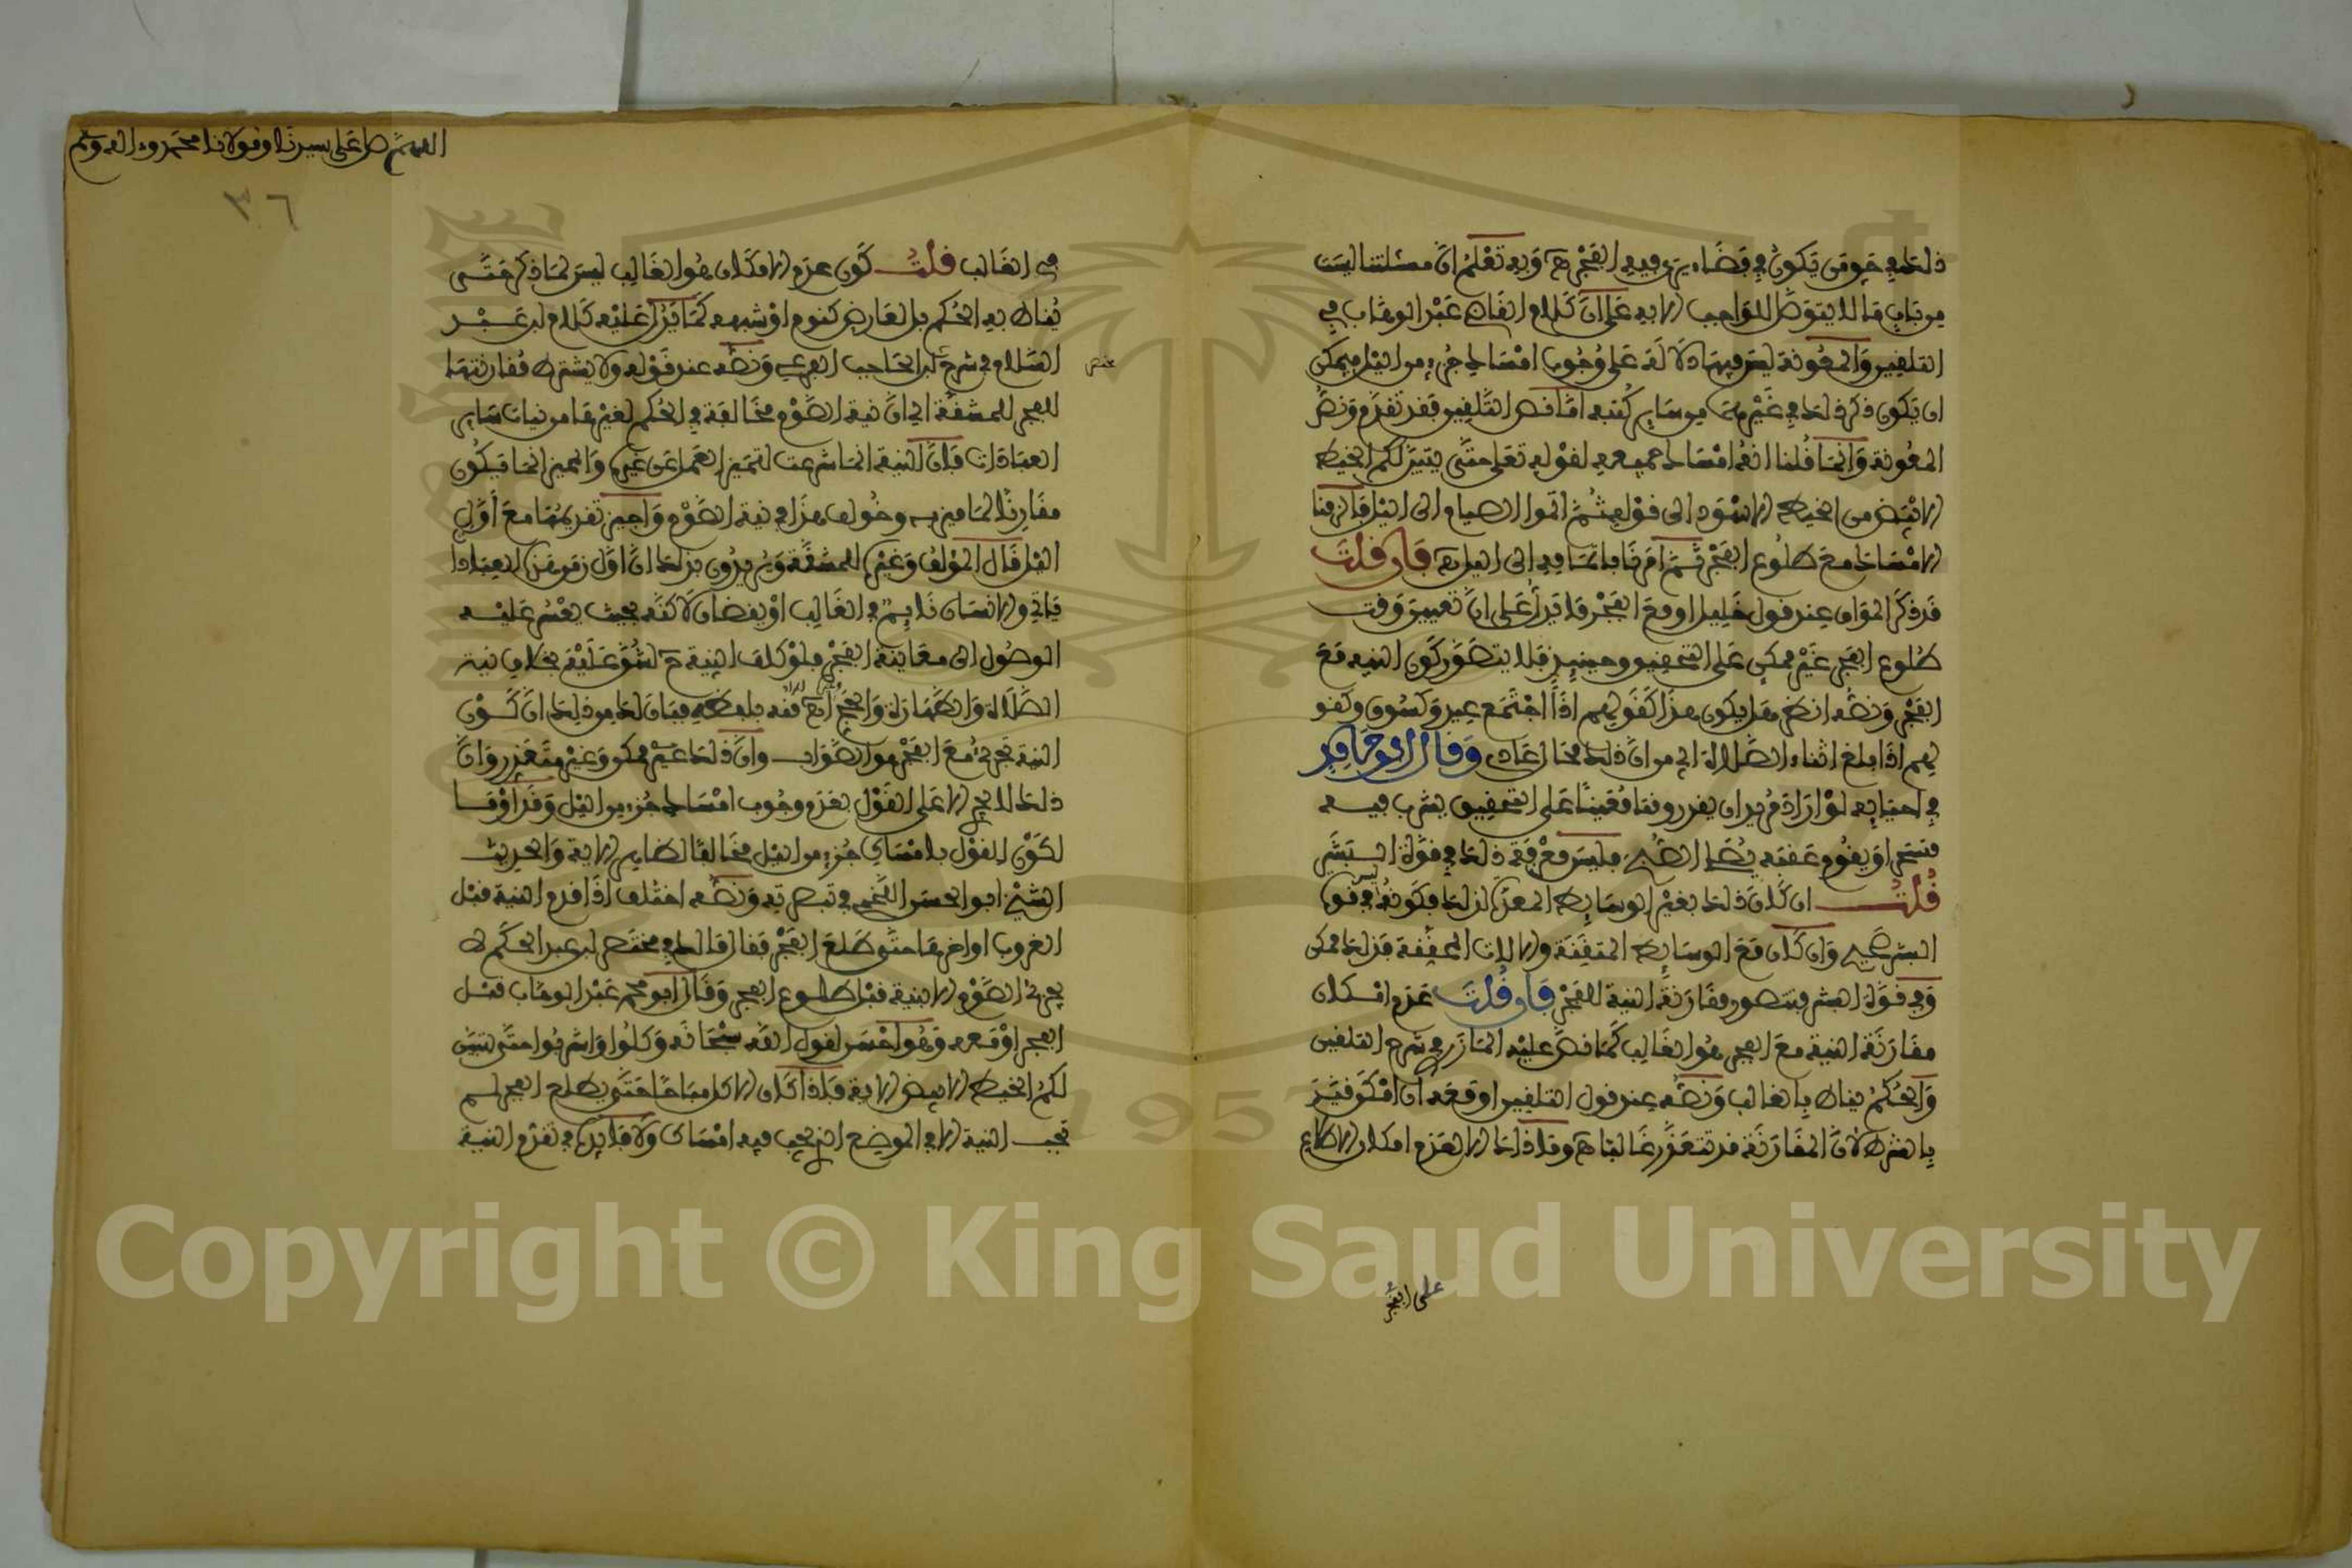 ذلك في حق من يكون في فضاء يرى فيه الفجر هـ وبه تعلم ان مسئلتنا ليست
من باب ما لا يتوصل للواجب الا به على ان كلام القاضي عبد الوهاب في
التلقين والمعونة ليس فيهما دلالة على وجوب امساك جزء من اليل فيمكن
ان يكون ذكر ذلك في غيرهما من ساير كتبه اما نص التلقين فقد تقدم ونص
المعونة وانما قلنا انه امساك جميعه لقوله تعلى حتى يتبين لكم الخيط
الابيض من الخيط الاسود الى قوله ثم اتموا الصيام الى اليل فالزمنا
الامساك مع طلوع الفجر ثم امرنا باتمامه الى اليل هـ فان قلت
قد ذكر المواق عند قول خليل او مع الفجر ما يدل على ان تعيين وقت
طلوع الفجر غير ممكن على التحقيق وحينيذ فلا يتصور كون النية مع
الفجر ونصه انظر هل يكون هذا كقولهم اذا اجتمع عيد وكسوف وكقو
لهم اذا بلغ اثناء الصلاة اي من ان ذلك محال عادي وقال ابو حامد
في احيايه لو اراد مريد ان يقدر وقتا معينا على التحقيق يشرب فيه
متسحر او يقوم عقبه يصلي الصبح فليس معرفة ذلك في قوة البشر
قلت ان كان ذلك بغير الوسايط المعدة لذلك فكونه ليس في قوة
البشر صحيح وان كان مع الوسايط المتقنة والالات المحققة فذلك ممكن
وفي قوة البشر فيتصور مقارنة النية الفجر فان قلت عدم امكان
مقارنة النية مع الفجر هو الغالب كما نص عليه المازري في شرح التلقين
والحكم يناط بالغالب ونصه عند قول التلقين او معه ان امكن فقيد
بالشرط لان المقارنة قد تتعذر غالبا هـ وما ذاك الا لعدم امكان الاطلاع
على الفجر
اللهم صل على سيدنا ومولانا محمد وءاله وسلم
٣٦
في الغالب قلت كون عدم الامكان هو الغالب ليس لما ذكر حتى
يناط به الحكم بل لعارض كنوم او شبهه كما يدل عليه كلام ابن عبد
السلام في شرح ابن الحاجب الفرعي ونصه عند قوله ولا يشترط مقارنتها
للفجر للمشقة اي ان نية الصوم مخالفة في الحكم لغيرها من نيات ساير
العبادات فان النية انما شرعت لتميز العمل عن غيره والمميز انما يكون
مقارنا لما ميز به وخولف هذا في نية الصوم واجيز تقديمها مع اول
اليل قال المؤلف وغيره للمشقة ويريدون بذلك ان اول زمن هذه العبادة
ياتي والانسان نايم في الغالب او يقضان لاكنه بحيث يعسر عليه
الوصول الى معاينة الفجر فلو كلف النية ح لشق عليه بخلاف نية
الصلاة والطهارة والحج هـ المراد منه بلفظه فبان لك من ذلك ان كون
النية تجزئ مع الفجر هو الصواب وان ذلك غير ممكن وغير متعذر وان
ذلك لا يجري الا على القول بعدم وجوب امساك جزء من اليل وقد اوقفنا
لكون القول بامساك جزء من اليل مخالفا لظاهر الاية والحديث
الشيخ ابو الحسن اللخمي في تبصرته ونصه اختلف اذا قدم النية قبل
الغروب او اخرها حتى طلع الفجر فقال مالك في مختصر ابن عبد الحكم لا
يجزئ الصوم الا بنية قبل طلوع الفجر وقال ابو محمد عبد الوهاب قبل
الفجر او معه وهو احسن لقول الله سبحانه وكلوا واشربوا حتى يتبين
لكم الخيط الابيض الاية فاذا كان الاكل مباحا حتى يطلع الفجر لم
تجب النية الا في الموضع الذي يجب فيه امساك ولا فايدة في تقدم النية